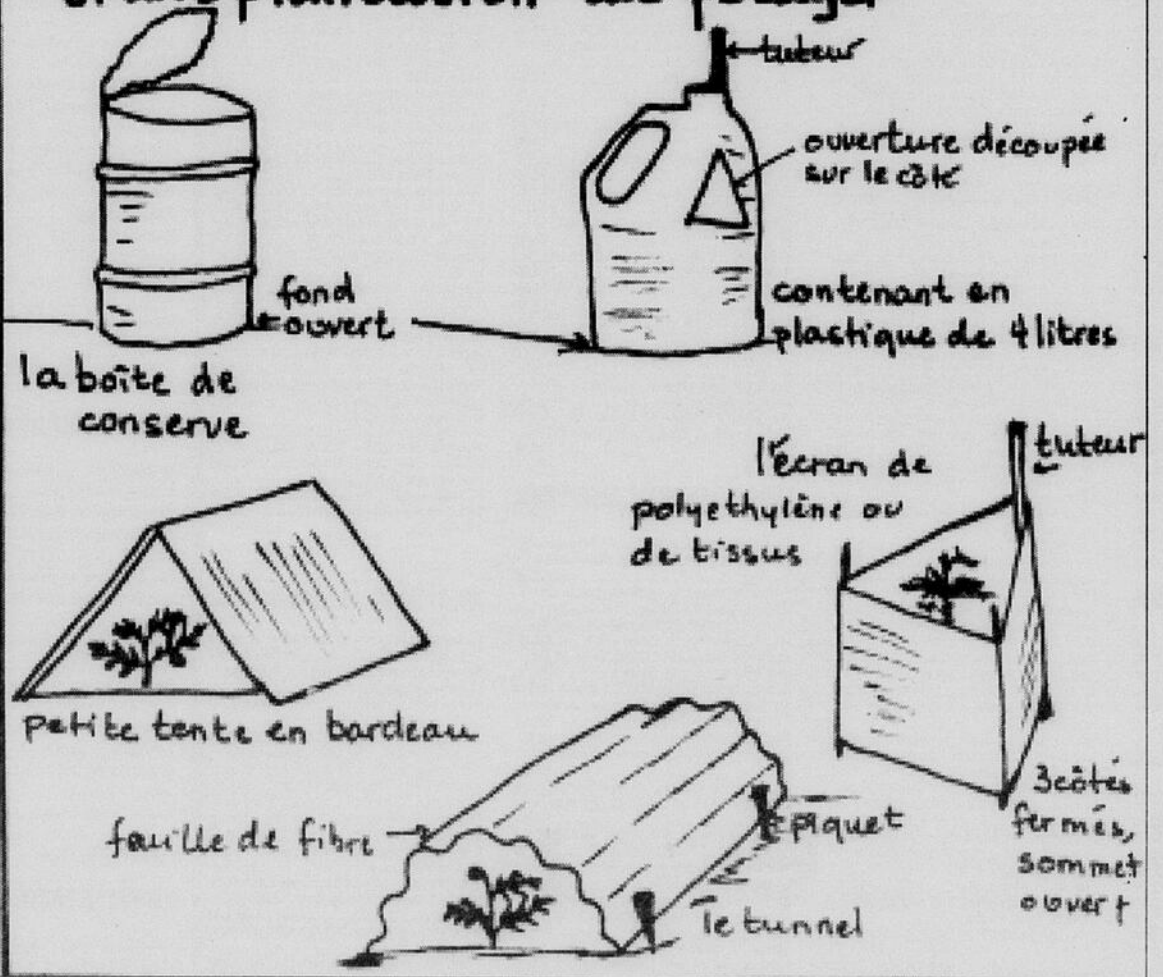 transplantation au potager
tuteur
ouverture découpée
sur le côté
fond
ouvert
contenant en
plastique de 4 litres
la boîte de
conserve
tuteur
l'écran de
polyethylène ou
de tissus
petite tente en bardeau
3 côtés
fermés,
sommet
ouvert
feuille de fibre
piquet
le tunnel